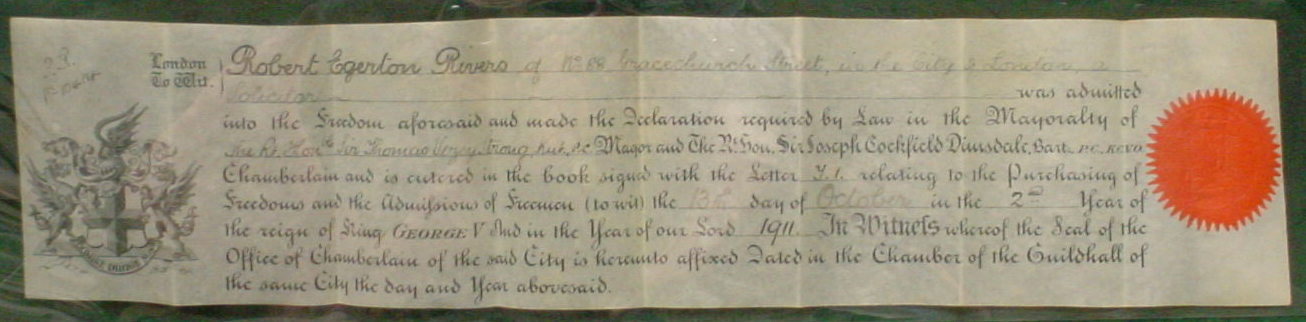 London
To Wit.
Robert Egerton Rivers of No. 88 Gracechurch Street, in the City of London, a
Solicitor was admitted
into the Freedom aforesaid and made the Declaration required by Law in the Mayoralty of
The Rt. Honble Sir Thomas Vezey Strong, Knt, P.C. Mayor and The Rt. Hon. Sir Joseph Cockfield Dimsdale, Bart. P.C. K.C.V.O.
Chamberlain and is entered in the book signed with the Letter relating to the Purchasing of
Freedoms and the Admissions of Freemen (to wit) the 13th day of October in the 2nd Year of
the reign of King GEORGE V And in the Year of our Lord 1911. In Witness whereof the Seal of the
Office of Chamberlain of the said City is hereunto affixed Dated in the Chamber of the Guildhall of
the same City the day and Year abovesaid.